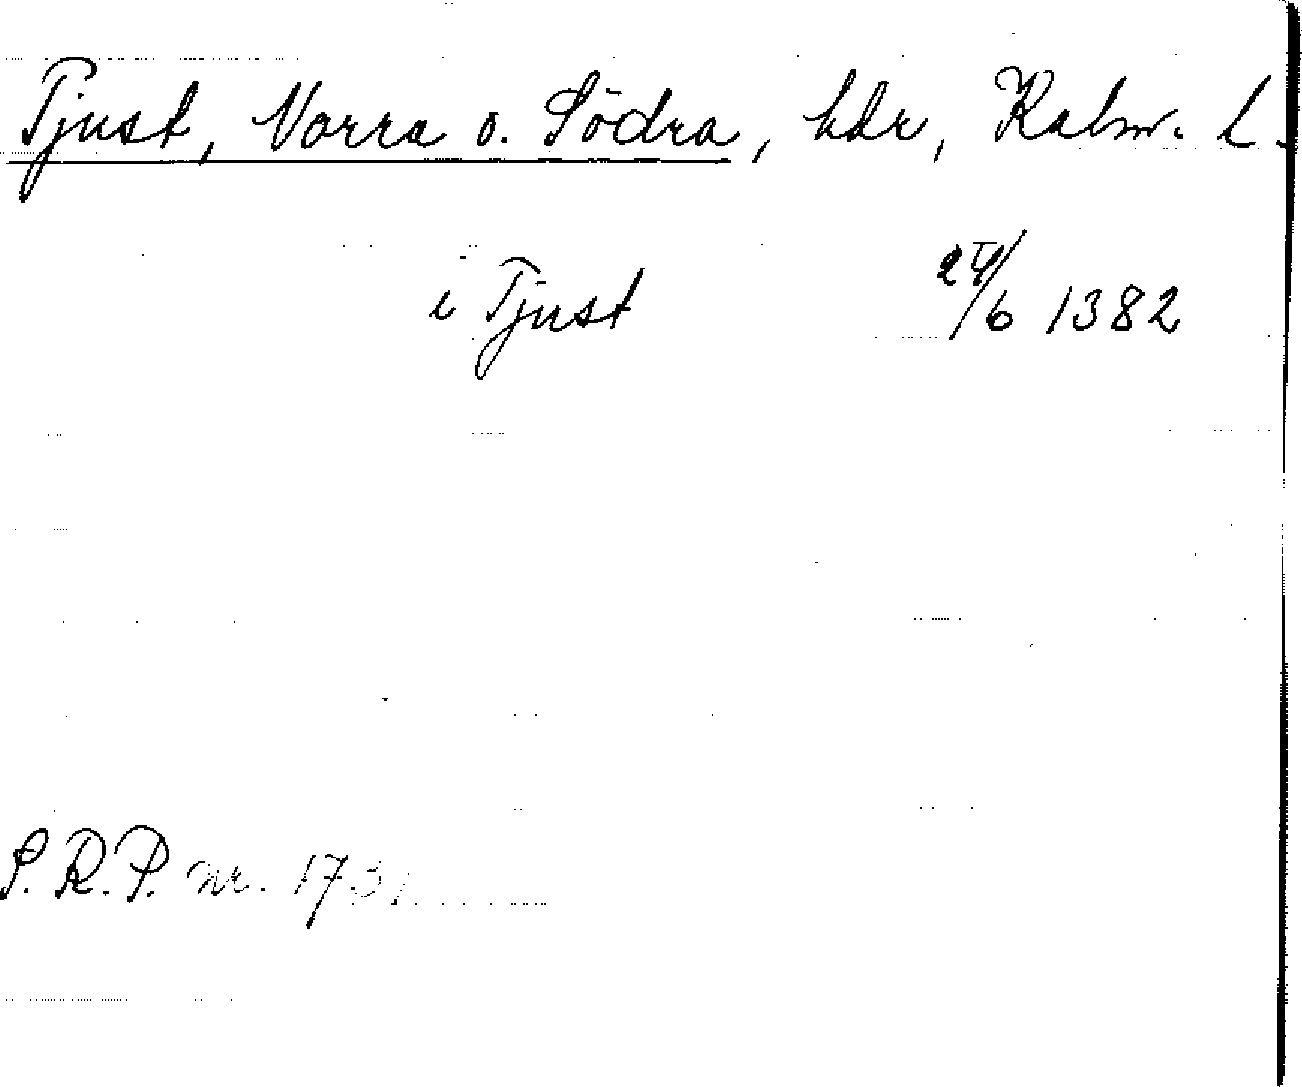 Tjust, Norra o. Södra, hdr, Kalm. l.
i Tjust 24/6 1382
S.R.P. nr. 1731